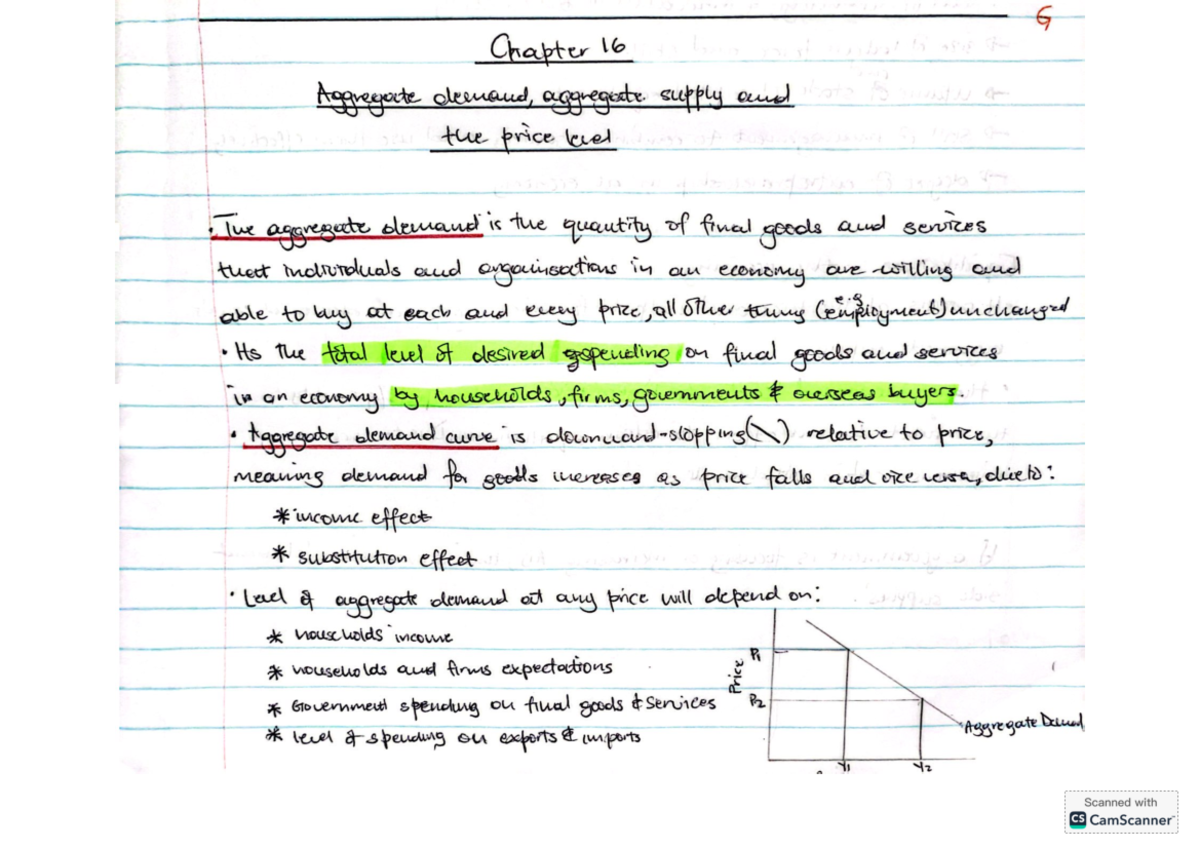 G
Chapter 16
Aggregate demand, aggregate supply and
the price level
• The aggregate demand is the quantity of final goods and services
that individuals and organisations in an economy are willing and
able to buy at each and every price, all other things (e.g employment) unchanged
• Its the total level of desired spending on final goods and services
in an economy by households, firms, governments & overseas buyers.
• Aggregate demand curve is downward-slopping (\) relative to price,
meaning demand for goods increases as price falls and vice versa, due to:
* income effect
* substitution effect
• Level of aggregate demand at any price will depend on:
* households income
* households and firms expectations
* Government spending on final goods & services
* level of spending on exports & imports
Price
P1
P2
Aggregate Demand
Y1 Y2
Scanned with
CS CamScanner